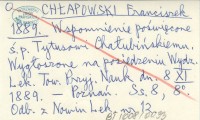 CHŁAPOWSKI Franciszek
1889. Wspomnienie poświęcone
ś.p. Tytusowi Chałubińskiemu.
Wygłoszone na posiedzeniu Wydz.
Lek. Tow. Przyj. Nauk dn. 8 XI
1889. — Poznań. Ss. 8, 8°
Odb. z Nowin Lek. nr 12